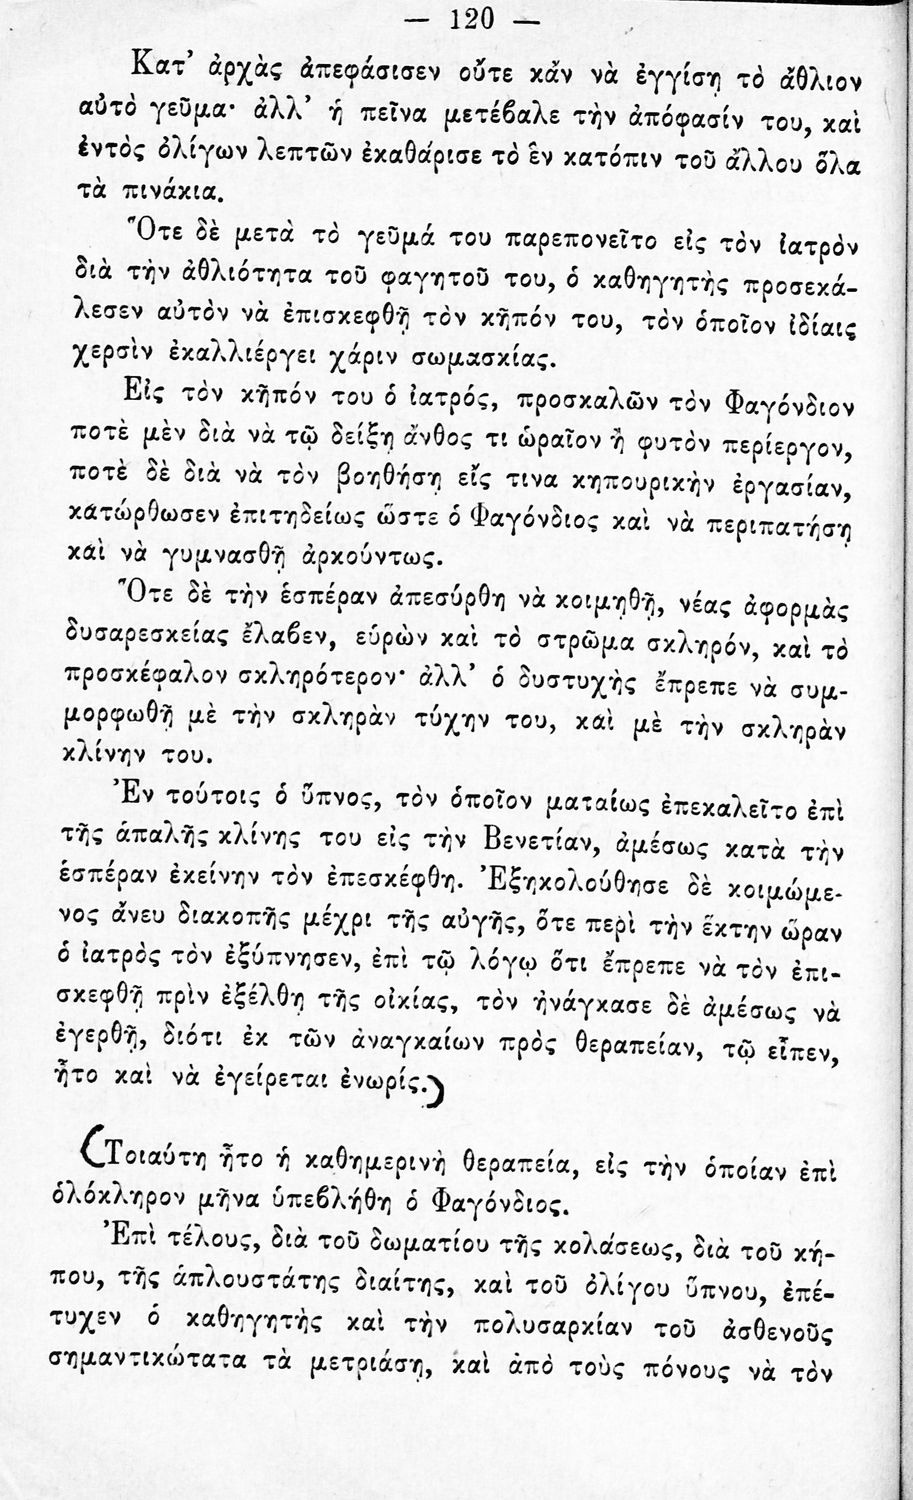 — 120 —
Κατ’ ἀρχὰς ἀπεφάσισεν οὔτε κἂν νὰ ἐγγίσῃ τὸ ἄθλιον
αὐτὸ γεῦμα· ἀλλ’ ἡ πεῖνα μετέϐαλε τὴν ἀπόφασίν του, καὶ
ἐντὸς ὀλίγων λεπτῶν ἐκαθάρισε τὸ ἓν κατόπιν τοῦ ἄλλου ὅλα
τὰ πινάκια.
Ὅτε δὲ μετὰ τὸ γεῦμά του παρεπονεῖτο εἰς τὸν ἰατρὸν
διὰ τὴν ἀθλιότητα τοῦ φαγητοῦ του, ὁ καθηγητὴς προσεκά-
λεσεν αὐτὸν νὰ ἐπισκεφθῇ τὸν κῆπόν του, τὸν ὁποῖον ἰδίαις
χερσὶν ἐκαλλιέργει χάριν σωμασκίας.
Εἰς τὸν κῆπόν του ὁ ἰατρός, προσκαλῶν τὸν Φαγόνδιον
ποτὲ μὲν διὰ νὰ τῷ δείξῃ ἄνθος τι ὡραῖον ἢ φυτὸν περίεργον,
ποτὲ δὲ διὰ νὰ τὸν βοηθήσῃ εἴς τινα κηπουρικὴν ἐργασίαν,
κατώρθωσεν ἐπιτηδείως ὥστε ὁ Φαγόνδιος καὶ νὰ περιπατήσῃ
καὶ νὰ γυμνασθῇ ἀρκούντως.
Ὅτε δὲ τὴν ἑσπέραν ἀπεσύρθη νὰ κοιμηθῇ, νέας ἀφορμὰς
δυσαρεσκείας ἔλαϐεν, εὑρὼν καὶ τὸ στρῶμα σκληρόν, καὶ τὸ
προσκέφαλον σκληρότερον· ἀλλ’ ὁ δυστυχὴς ἔπρεπε νὰ συμ-
μορφωθῇ μὲ τὴν σκληρὰν τύχην του, καὶ μὲ τὴν σκληρὰν
κλίνην του.
Ἐν τούτοις ὁ ὕπνος, τὸν ὁποῖον ματαίως ἐπεκαλεῖτο ἐπὶ
τῆς ἁπαλῆς κλίνης του εἰς τὴν Βενετίαν, ἀμέσως κατὰ τὴν
ἑσπέραν ἐκείνην τὸν ἐπεσκέφθη. Ἐξηκολούθησε δὲ κοιμώμε-
νος ἄνευ διακοπῆς μέχρι τῆς αὐγῆς, ὅτε περὶ τὴν ἕκτην ὥραν
ὁ ἰατρὸς τὸν ἐξύπνησεν, ἐπὶ τῷ λόγῳ ὅτι ἔπρεπε νὰ τὸν ἐπι-
σκεφθῇ πρὶν ἐξέλθῃ τῆς οἰκίας, τὸν ἠνάγκασε δὲ ἀμέσως νὰ
ἐγερθῇ, διότι ἐκ τῶν ἀναγκαίων πρὸς θεραπείαν, τῷ εἶπεν,
ἦτο καὶ νὰ ἐγείρεται ἐνωρίς.)
(Τοιαύτη ἦτο ἡ καθημερινὴ θεραπεία, εἰς τὴν ὁποίαν ἐπὶ
ὁλόκληρον μῆνα ὑπεϐλήθη ὁ Φαγόνδιος.
Ἐπὶ τέλους, διὰ τοῦ δωματίου τῆς κολάσεως, διὰ τοῦ κή-
που, τῆς ἁπλουστάτης διαίτης, καὶ τοῦ ὀλίγου ὕπνου, ἐπέ-
τυχεν ὁ καθηγητὴς καὶ τὴν πολυσαρκίαν τοῦ ἀσθενοῦς
σημαντικώτατα τὰ μετριάσῃ, καὶ ἀπὸ τοὺς πόνους νὰ τὸν